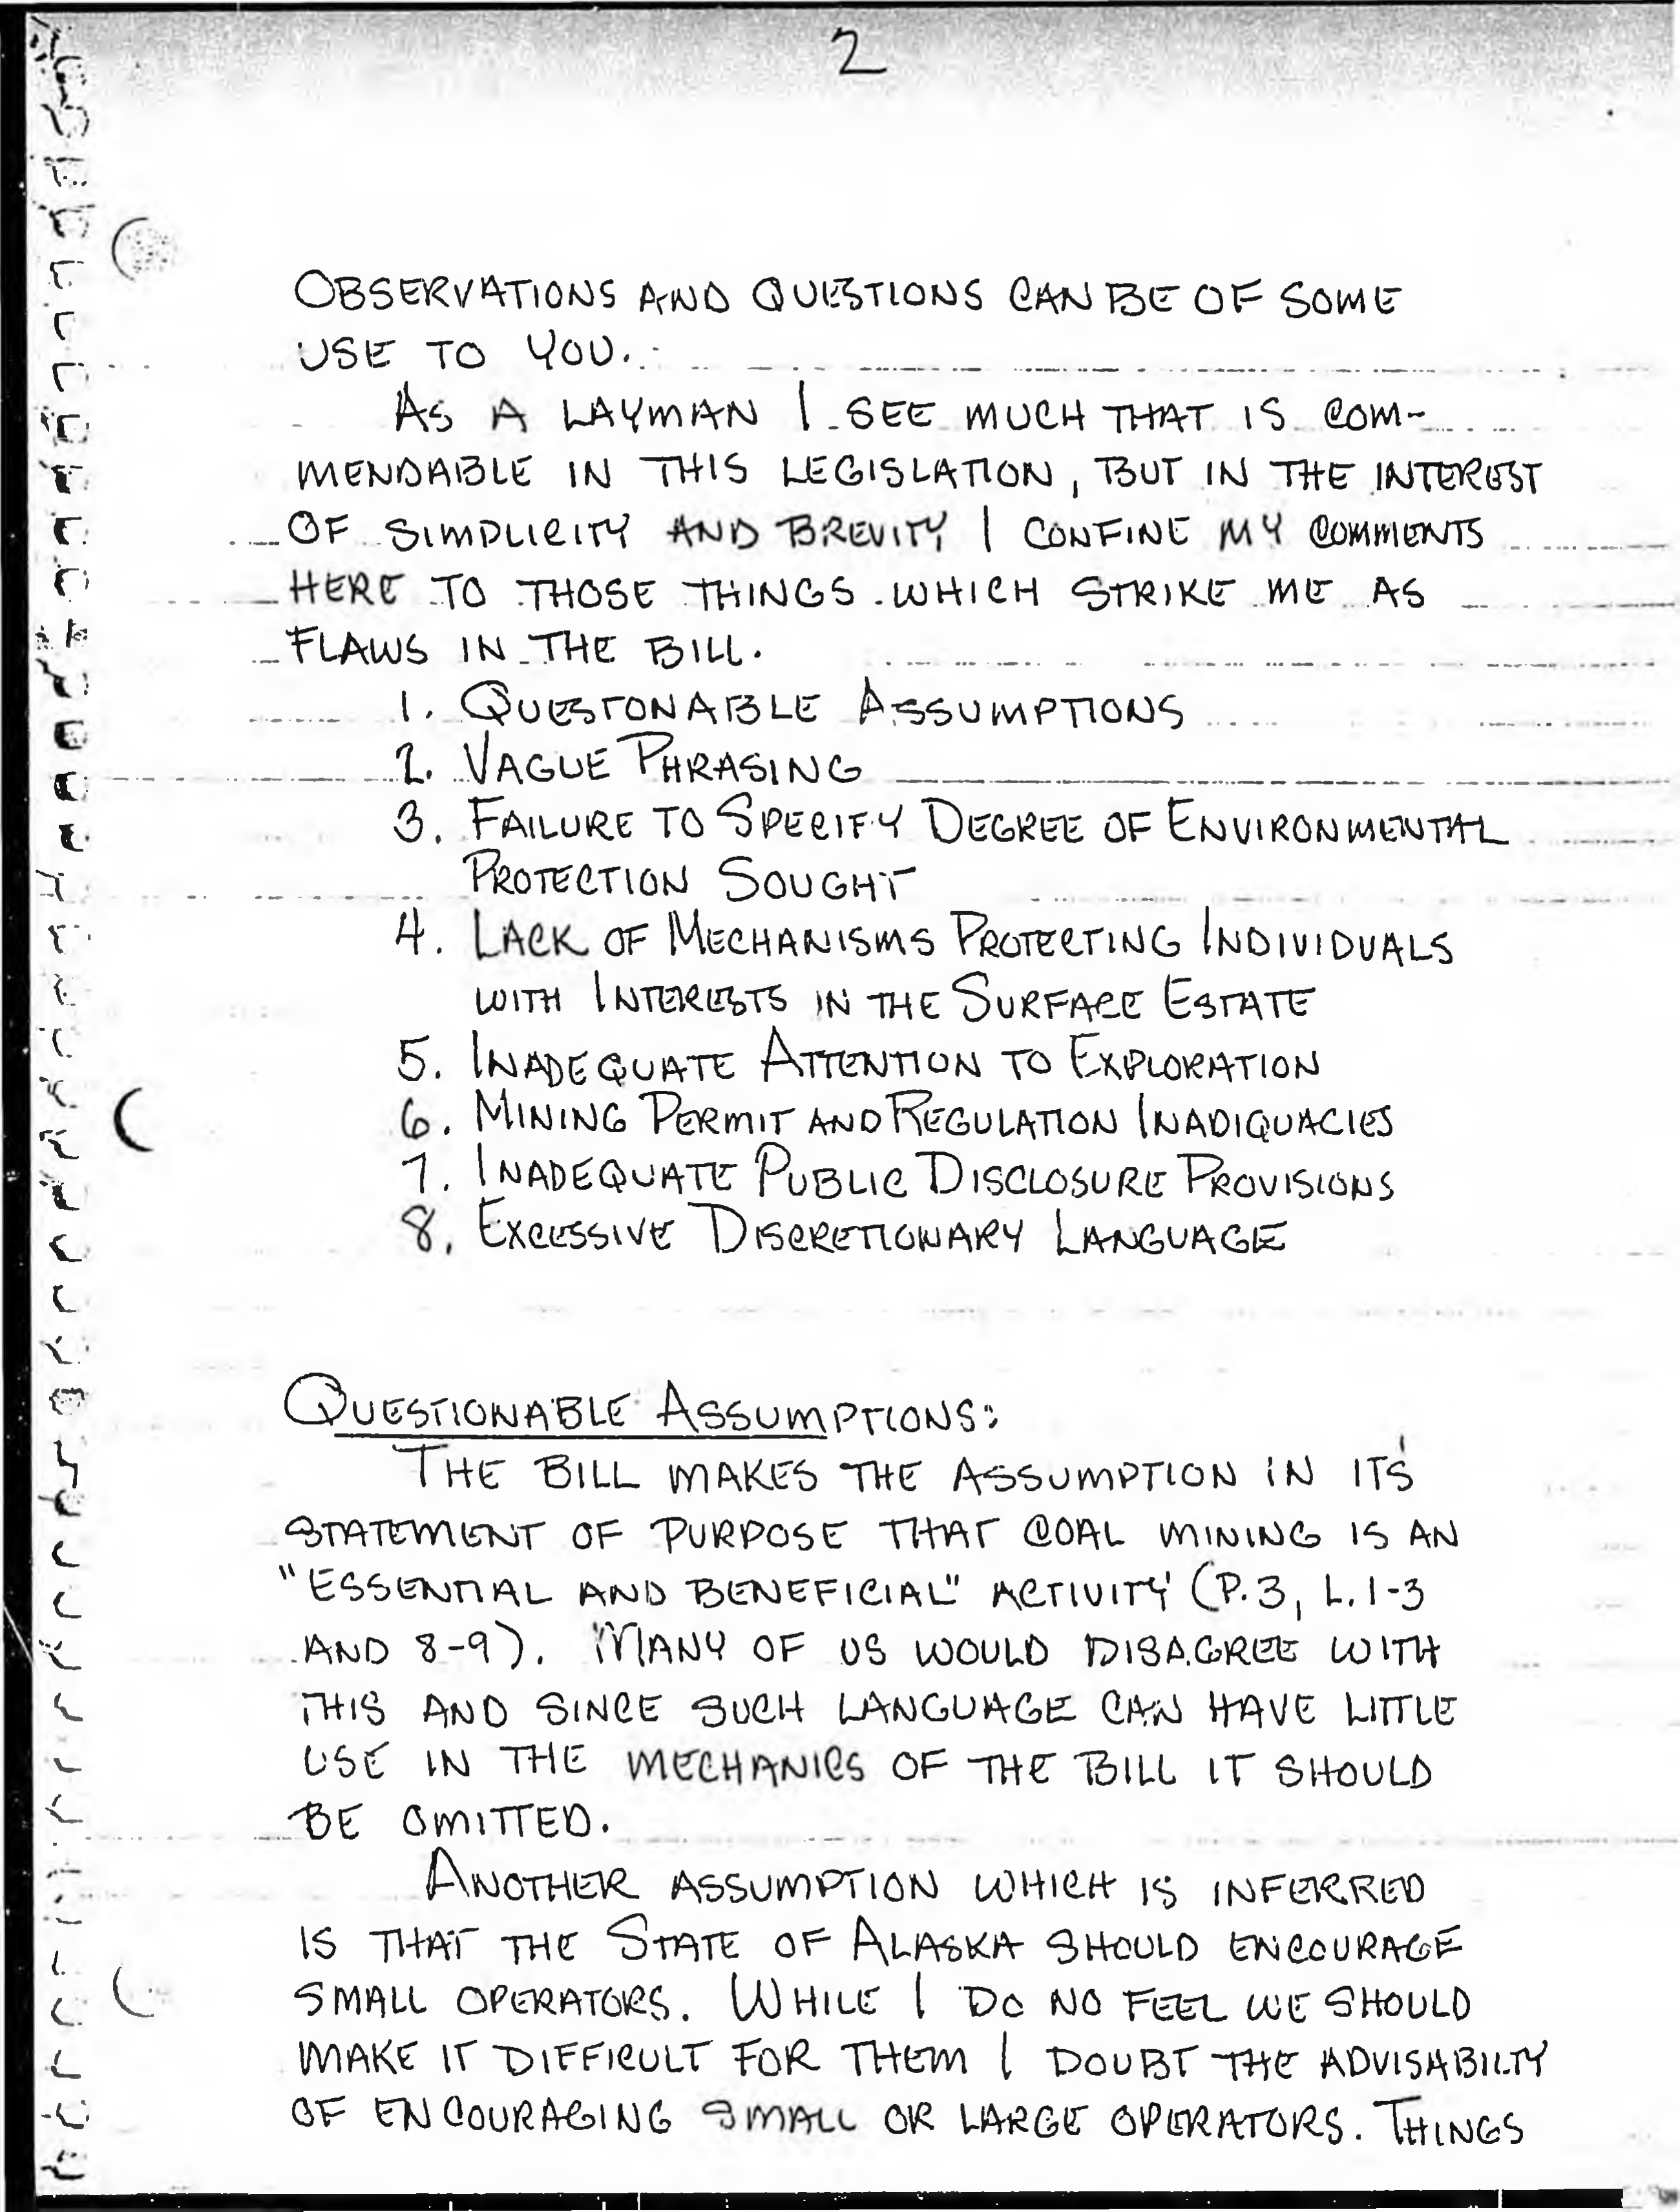 2
OBSERVATIONS AND QUESTIONS CAN BE OF SOME
USE TO YOU.
AS A LAYMAN I SEE MUCH THAT IS COM-
MENDABLE IN THIS LEGISLATION, BUT IN THE INTEREST
OF SIMPLICITY AND BREVITY I CONFINE MY COMMENTS
HERE TO THOSE THINGS WHICH STRIKE ME AS
FLAWS IN THE BILL.
1. QUESTONABLE ASSUMPTIONS
2. VAGUE PHRASING
3. FAILURE TO SPECIFY DEGREE OF ENVIRONMENTAL
PROTECTION SOUGHT
4. LACK OF MECHANISMS PROTECTING INDIVIDUALS
WITH INTERESTS IN THE SURFACE ESTATE
5. INADEQUATE ATTENTION TO EXPLORATION
6. MINING PERMIT AND REGULATION INADIQUACIES
7. INADEQUATE PUBLIC DISCLOSURE PROVISIONS
8. EXCESSIVE DISCRETIONARY LANGUAGE
QUESTIONABLE ASSUMPTIONS:
THE BILL MAKES THE ASSUMPTION IN IT'S
STATEMENT OF PURPOSE THAT COAL MINING IS AN
"ESSENTIAL AND BENEFICIAL" ACTIVITY (P.3, L.1-3
AND 8-9). MANY OF US WOULD DISAGREE WITH
THIS AND SINCE SUCH LANGUAGE CAN HAVE LITTLE
USE IN THE MECHANICS OF THE BILL IT SHOULD
BE OMITTED.
ANOTHER ASSUMPTION WHICH IS INFERRED
IS THAT THE STATE OF ALASKA SHOULD ENCOURAGE
SMALL OPERATORS. WHILE I DO NO FEEL WE SHOULD
MAKE IT DIFFICULT FOR THEM I DOUBT THE ADVISABILTY
OF ENCOURAGING SMALL OR LARGE OPERATORS. THINGS